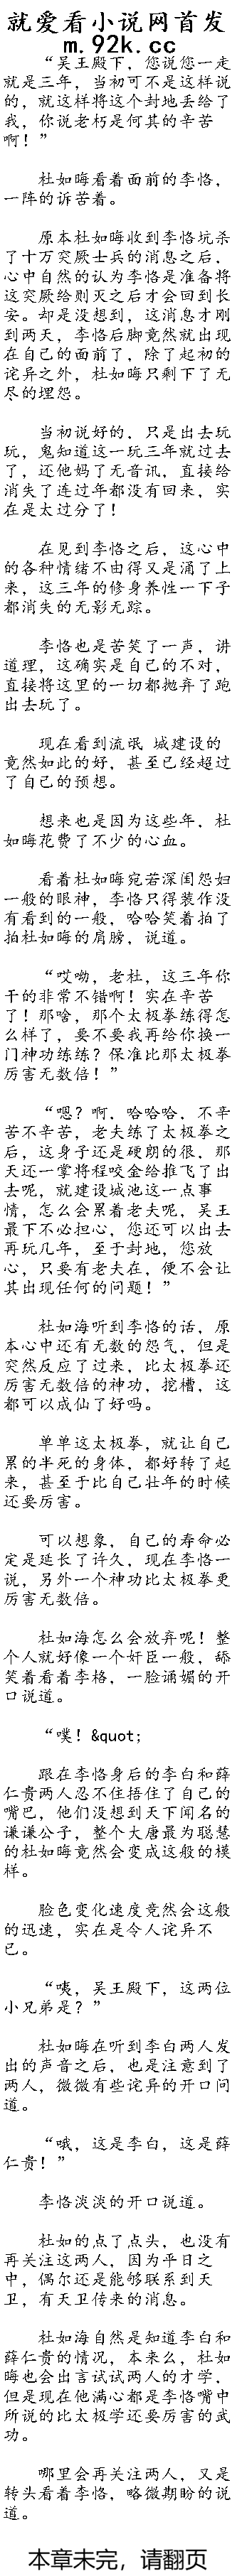 就爱看小说网首发
m.92k.cc
“吴王殿下，您说您一走
就是三年，当初可不是这样说
的，就这样将这个封地丢给了
我，你说老朽是何其的辛苦
啊！”
杜如晦看着面前的李恪，
一阵的诉苦着。
原本杜如晦收到李恪坑杀
了十万突厥士兵的消息之后，
心中自然的认为李恪是准备将
这突厥给剿灭之后才会回到长
安。却是没想到，这消息才刚
到两天，李恪后脚竟然就出现
在自己的面前了，除了起初的
诧异之外，杜如晦只剩下了无
尽的埋怨。
当初说好的，只是出去玩
玩，鬼知道这一玩三年就过去
了，还他妈了无音讯，直接给
消失了连过年都没有回来，实
在是太过分了！
在见到李恪之后，这心中
的各种情绪不由得又是涌了上
来，这三年的修身养性一下子
都消失的无影无踪。
李恪也是苦笑了一声，讲
道理，这确实是自己的不对，
直接将这里的一切都抛弃了跑
出去玩了。
现在看到流氓 城建设的
竟然如此的好，甚至已经超过
了自己的预想。
想来也是因为这些年，杜
如晦花费了不少的心血。
看着杜如晦宛若深闺怨妇
一般的眼神，李恪只得装作没
有看到的一般，哈哈笑着拍了
拍杜如晦的肩膀，说道。
“哎呦，老杜，这三年你
干的非常不错啊！实在辛苦
了！那啥，那个太极拳练得怎
么样了，要不要我再给你换一
门神功练练？保准比那太极拳
厉害无数倍！”
“嗯？啊，哈哈哈，不辛
苦不辛苦，老夫练了太极拳之
后，这身子还是硬朗的很，那
天还一掌将程咬金给推飞了出
去呢，就建设城池这一点事
情，怎么会累着老夫呢，吴王
殿下不必担心，您还可以出去
再玩几年，至于封地，您放
心，只要有老夫在，便不会让
其出现任何的问题！”
杜如海听到李恪的话，原
本心中还有无数的怨气，但是
突然反应了过来，比太极拳还
厉害无数倍的神功，挖槽，这
都可以成仙了好吗。
单单这太极拳，就让自己
累的半死的身体，都好转了起
来，甚至于比自己壮年的时候
还要厉害。
可以想象，自己的寿命必
定是延长了许久，现在李恪一
说，另外一个神功比太极拳更
厉害无数倍。
杜如海怎么会放弃呢！整
个人就好像一个奸臣一般，舔
笑着看着李格，一脸谄媚的开
口说道。
“噗！&quot;
跟在李恪身后的李白和薛
仁贵两人忍不住捂住了自己的
嘴巴，他们没想到天下闻名的
谦谦公子，整个大唐最为聪慧
的杜如晦竟然会变成这般的模
样。
脸色变化速度竞然会这般
的迅速，实在是令人诧异不
已。
“咦，吴王殿下，这两位
小兄弟是？”
杜如晦在听到李白两人发
出的声音之后，也是注意到了
两人，微微有些诧异的开口问
道。
“哦，这是李白，这是薛
仁贵！”
李恪淡淡的开口说道。
杜如的点了点头，也没有
再关注这两人，因为平日之
中，偶尔还是能够联系到天
卫，有天卫传来的消息。
杜如海自然是知道李白和
薛仁贵的情况，本来么，杜如
晦也会出言试试两人的才学，
但是现在他满心都是李恪嘴中
所说的比太极学还要厉害的武
功。
哪里会再关注两人，又是
转头看着李恪，略微期盼的说
道。
本章未完，请翻页